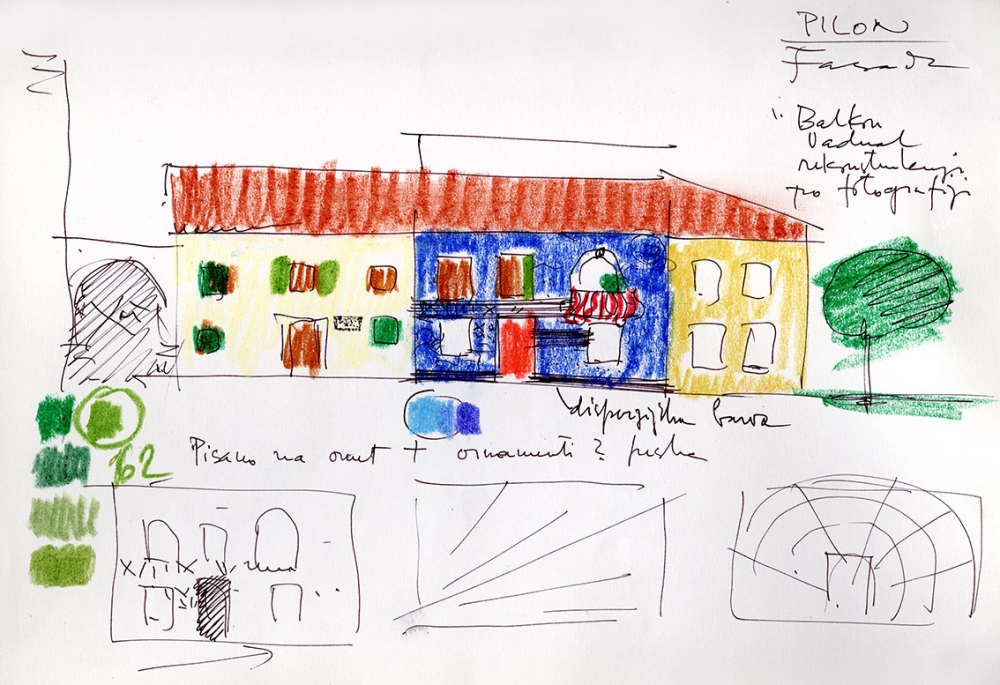 PILON
Fasade
Balkon
rekonstrukciji
po fotografiji
disperzijska barva
162
Pisano na omet + ornamenti ? freska